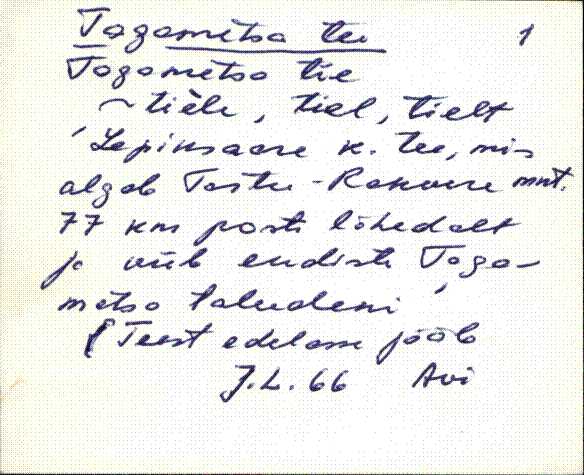 Tagametsa tee 1
Tagametsa tie
~ tiele, tiel, tielt
'Lepiksaare k. tee, mis
algab Tartu-Rakvere mnt.
77 km posti lähedalt
ja viib endiste Taga-
metsa taludeni'
(Teest edelasse jääb
J.L. 66 Avi